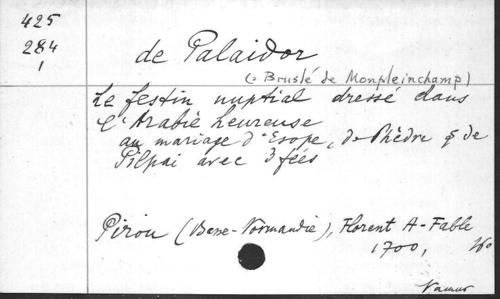 425
284
1
de Palaidor
(= Bruslé de Monpleinchamp)
Le festin nuptial dressé dans
l'Arabie heureuse
au mariage d'Esope, de Phèdre & de
Pilpai avec 3 fées
Pirou (Basse-Normandie), Florent A-Fable
1700,
Namur